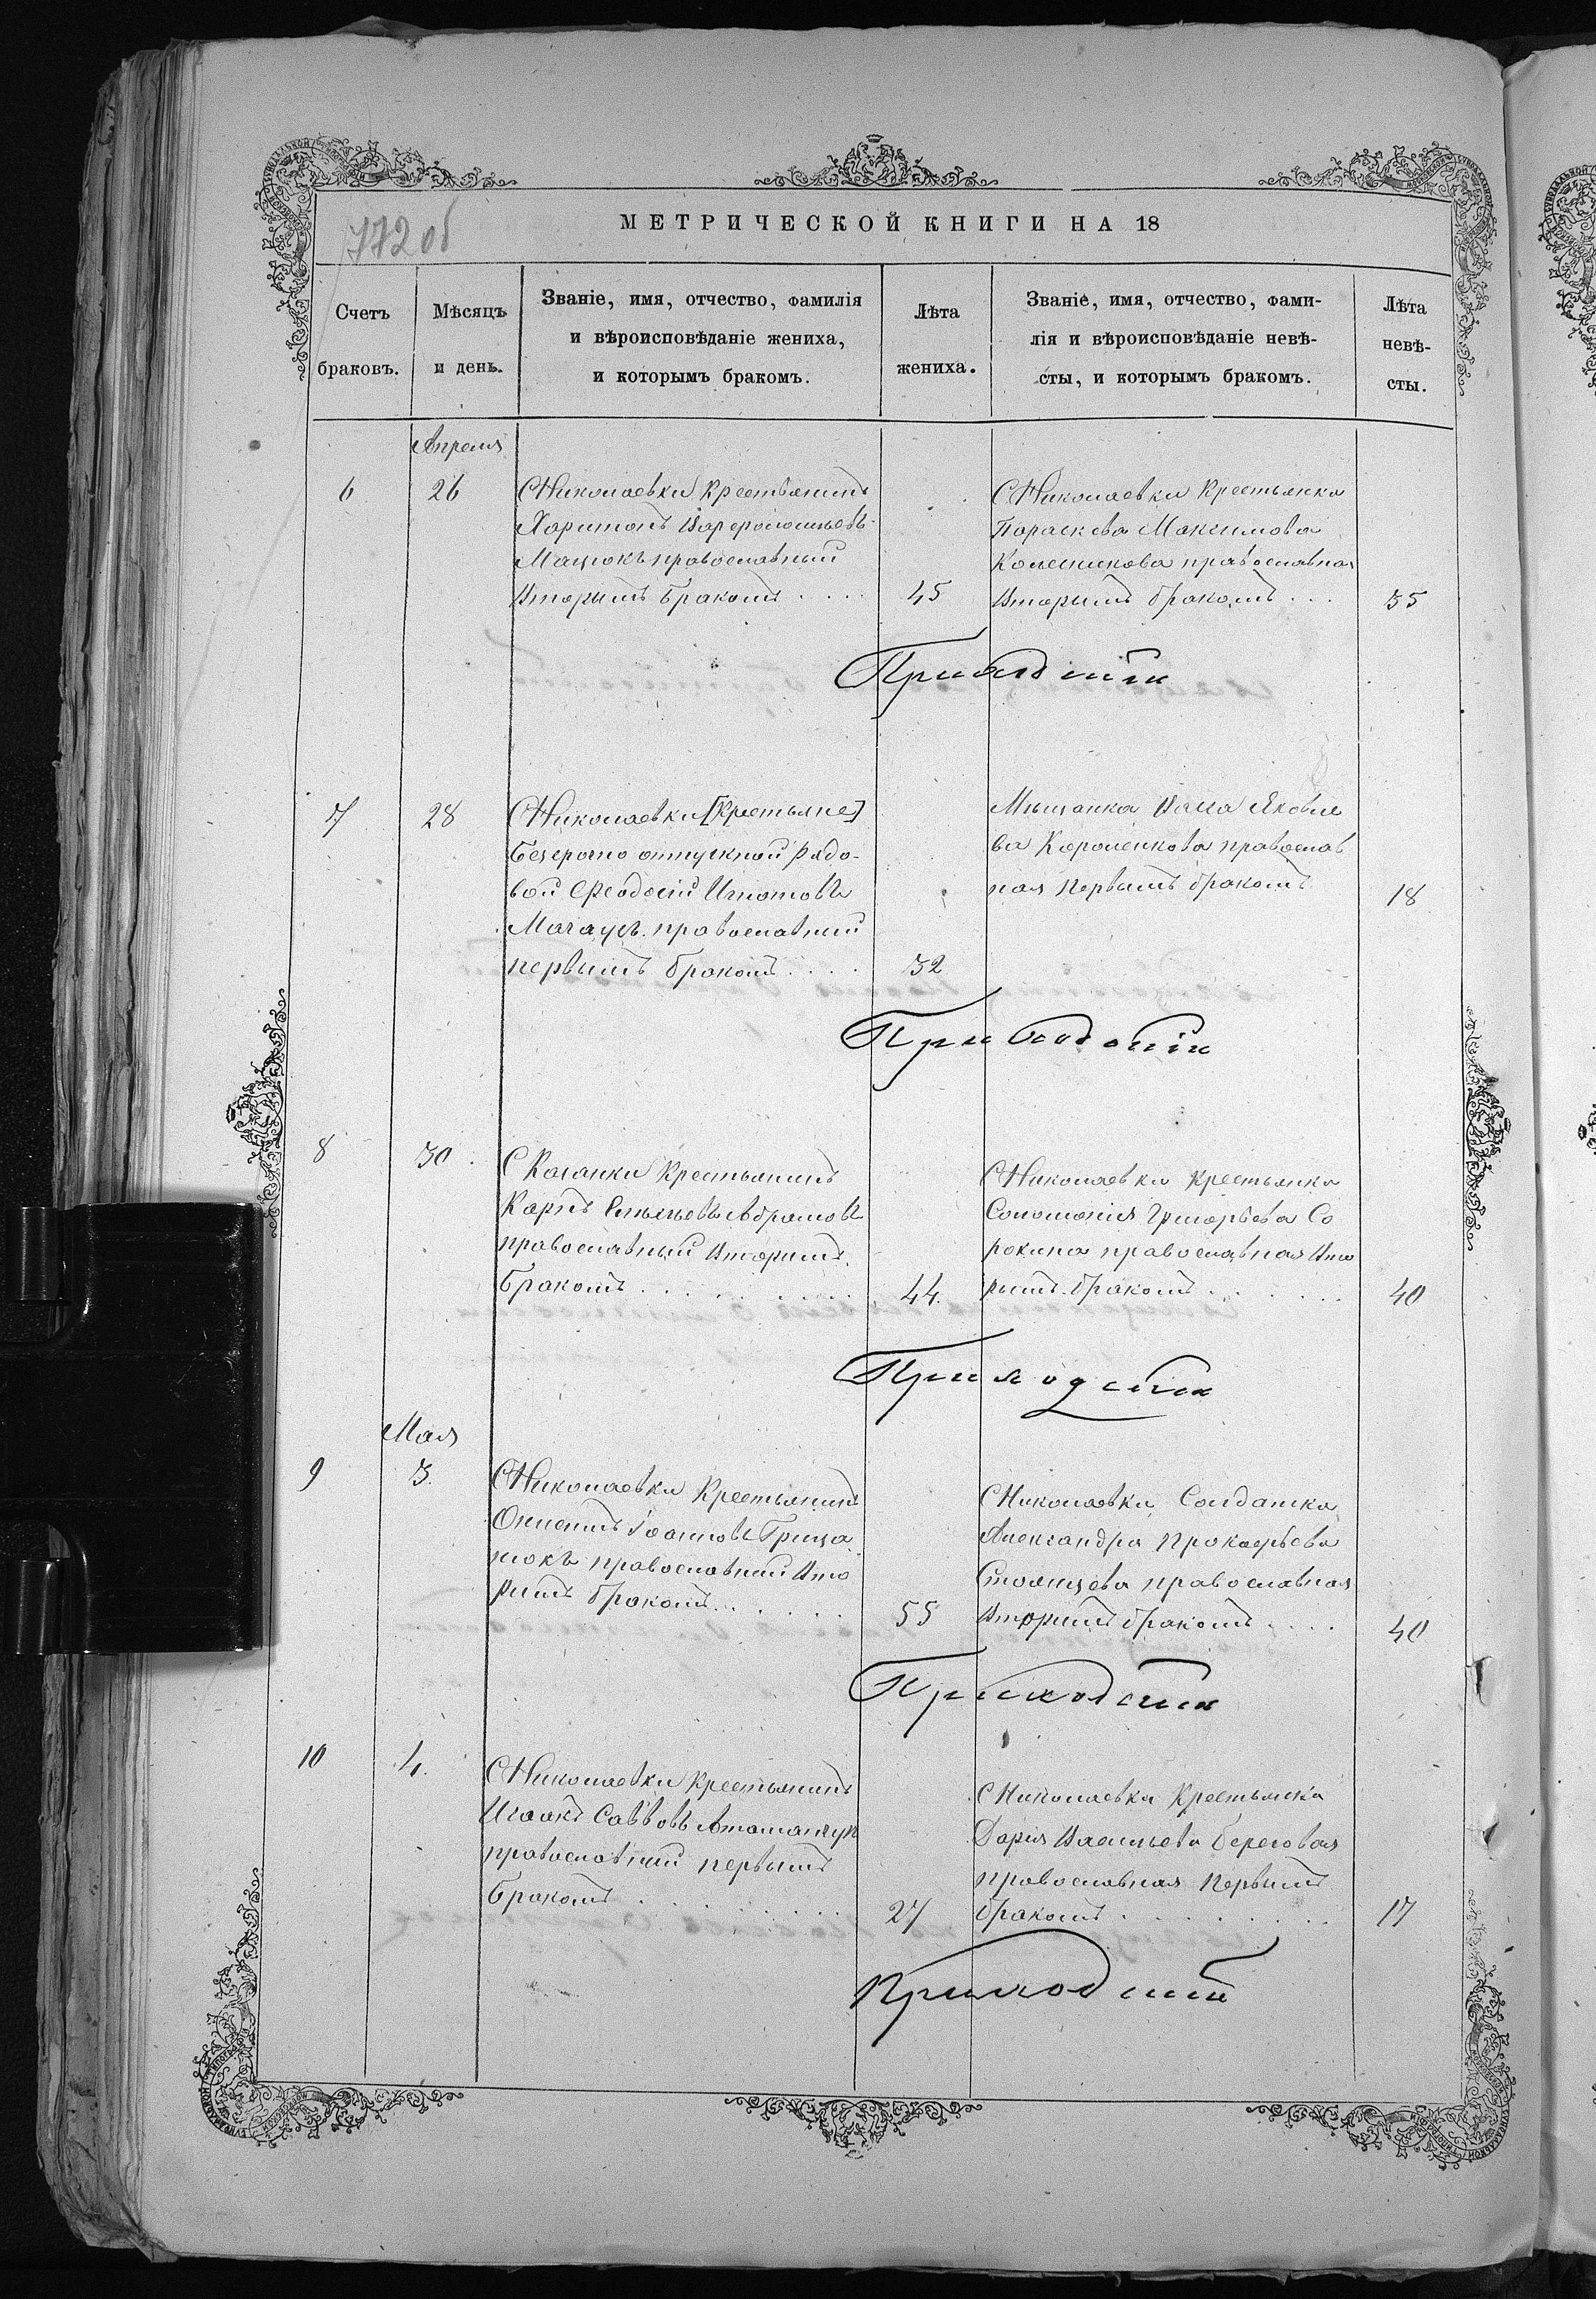 772 об
МЕТРИЧЕСКОЙ КНИГИ НА 18
Счетъ браковъ.
Мѣсяцъ и день.
Званіе, имя, отчество, фамилія
и вѣроисповѣданіе жениха,
и которымъ бракомъ.
Лѣта жениха.
Званіе, имя, отчество, фами-
лія и вѣроисповѣданіе невѣ-
сты, и которымъ бракомъ.
Лѣта невѣ-
сты.
Апреля
6
26
С Николаевки Крестьянинъ
Харитонъ Варфоломеевъ
Мацюкъ православный
Вторымъ бракомъ
45
С Николаевки Крестьянка
Параскева Максимова
Колесникова православная
Вторымъ бракомъ
35
Приходскіи
7
28
С Николаевки [Крестьяне]
безсрочно отпускной Рядо-
вой Феодосій Игнатовъ
православный
первымъ бракомъ
32
Мѣщанка Васса Яковле
ва Короленкова православ
ная Первымъ бракомъ
18
Приходскіи
8
30
С Казанки Крестьянинъ
Карпъ Емельяновъ Абрамовъ
православный Вторымъ
бракомъ
44.
С Николаевки Крестьянка
Соломонія Григорьева Со
рокина православная Вто
рымъ бракомъ
40
Приходскіи
Мая
9
3.
С Николаевки Крестьянинъ
Іоанновъ Грица
нюкъ православный Вто
рымъ бракомъ
55
С Николаевки Солдатка
Александра Прокофьева
православная
Вторымъ бракомъ
40
Приходскіи
10
4.
С Николаевки Крестьянинъ
Исаакъ Саввовъ Атаманчук
православный первымъ
бракомъ
27
С Николаевки Крестьянка
Дарія Васильева Береговая
православная Первымъ
бракомъ
17
Приходскіи